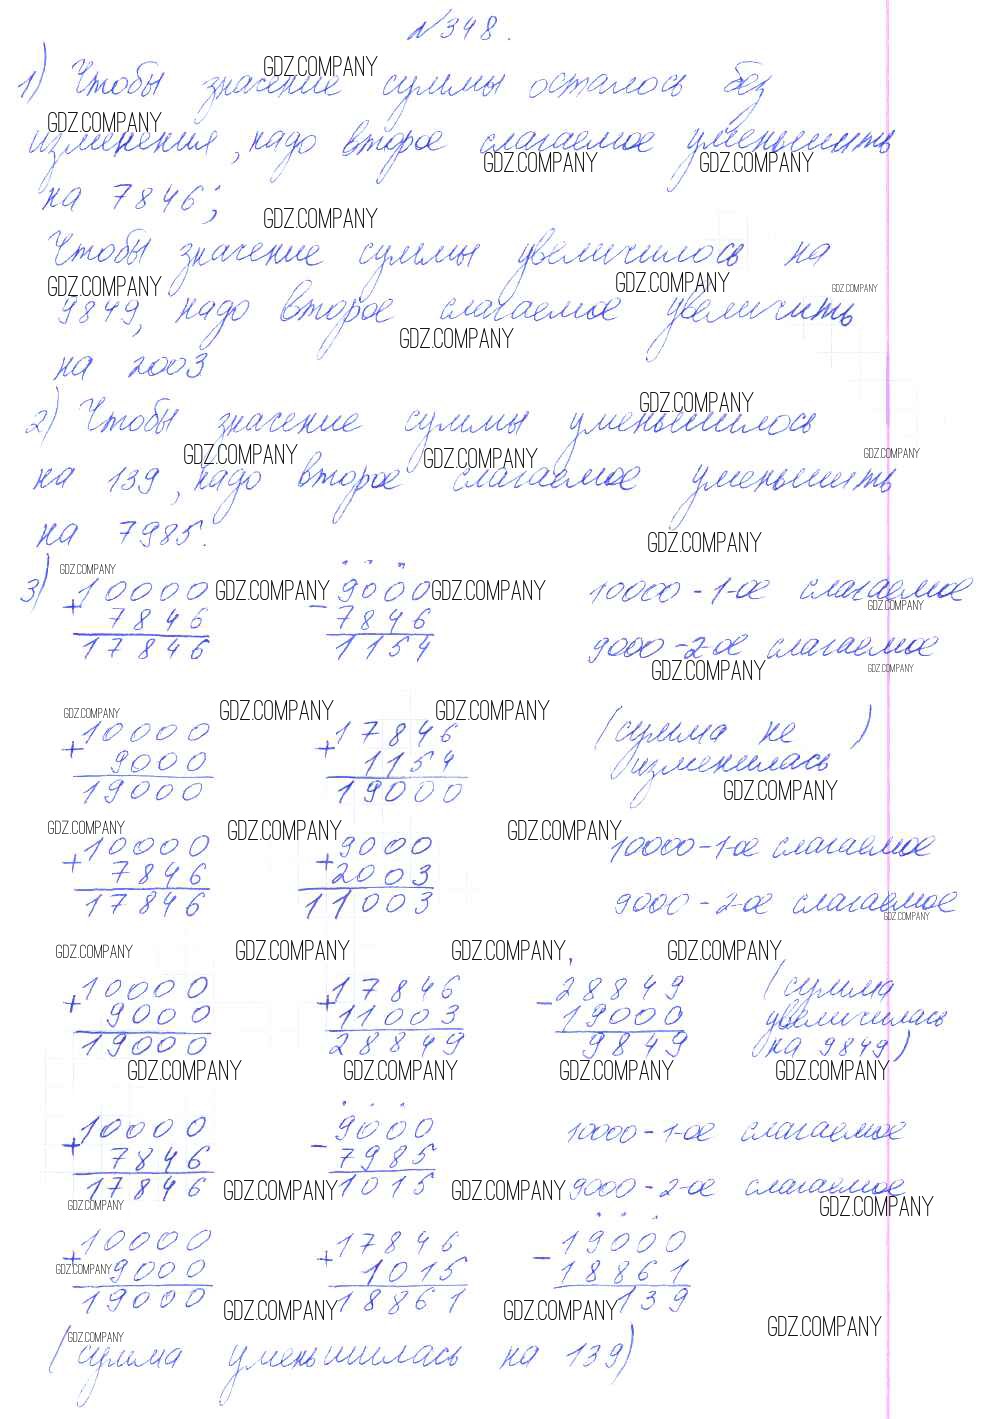 №348.
1) Чтобы значение суммы осталось без
изменения, надо второе слагаемое уменьшить
на 7846;
Чтобы значение суммы увеличилось на
9849, надо второе слагаемое увеличить
на 2003
2) Чтобы значение суммы уменьшилось
на 139, надо второе слагаемое уменьшить
на 7985.
3) 10000 + 7846 = 17846   9000 - 7846 = 1154   10000 - 1-ое слагаемое
9000 - 2-ое слагаемое
10000 + 9000 = 19000   17846 + 1154 = 19000   (сумма не изменилась)
10000 + 7846 = 17846   9000 + 2003 = 11003   10000 - 1-ое слагаемое
9000 - 2-ое слагаемое
10000 + 9000 = 19000   17846 + 11003 = 28849   28849 - 19000 = 9849   (сумма увеличилась на 9849)
10000 + 7846 = 17846   9000 - 7985 = 1015   10000 - 1-ое слагаемое
9000 - 2-ое слагаемое
10000 + 9000 = 19000   17846 + 1015 = 18861   19000 - 18861 = 139
(сумма уменьшилась на 139)
GDZ.COMPANY